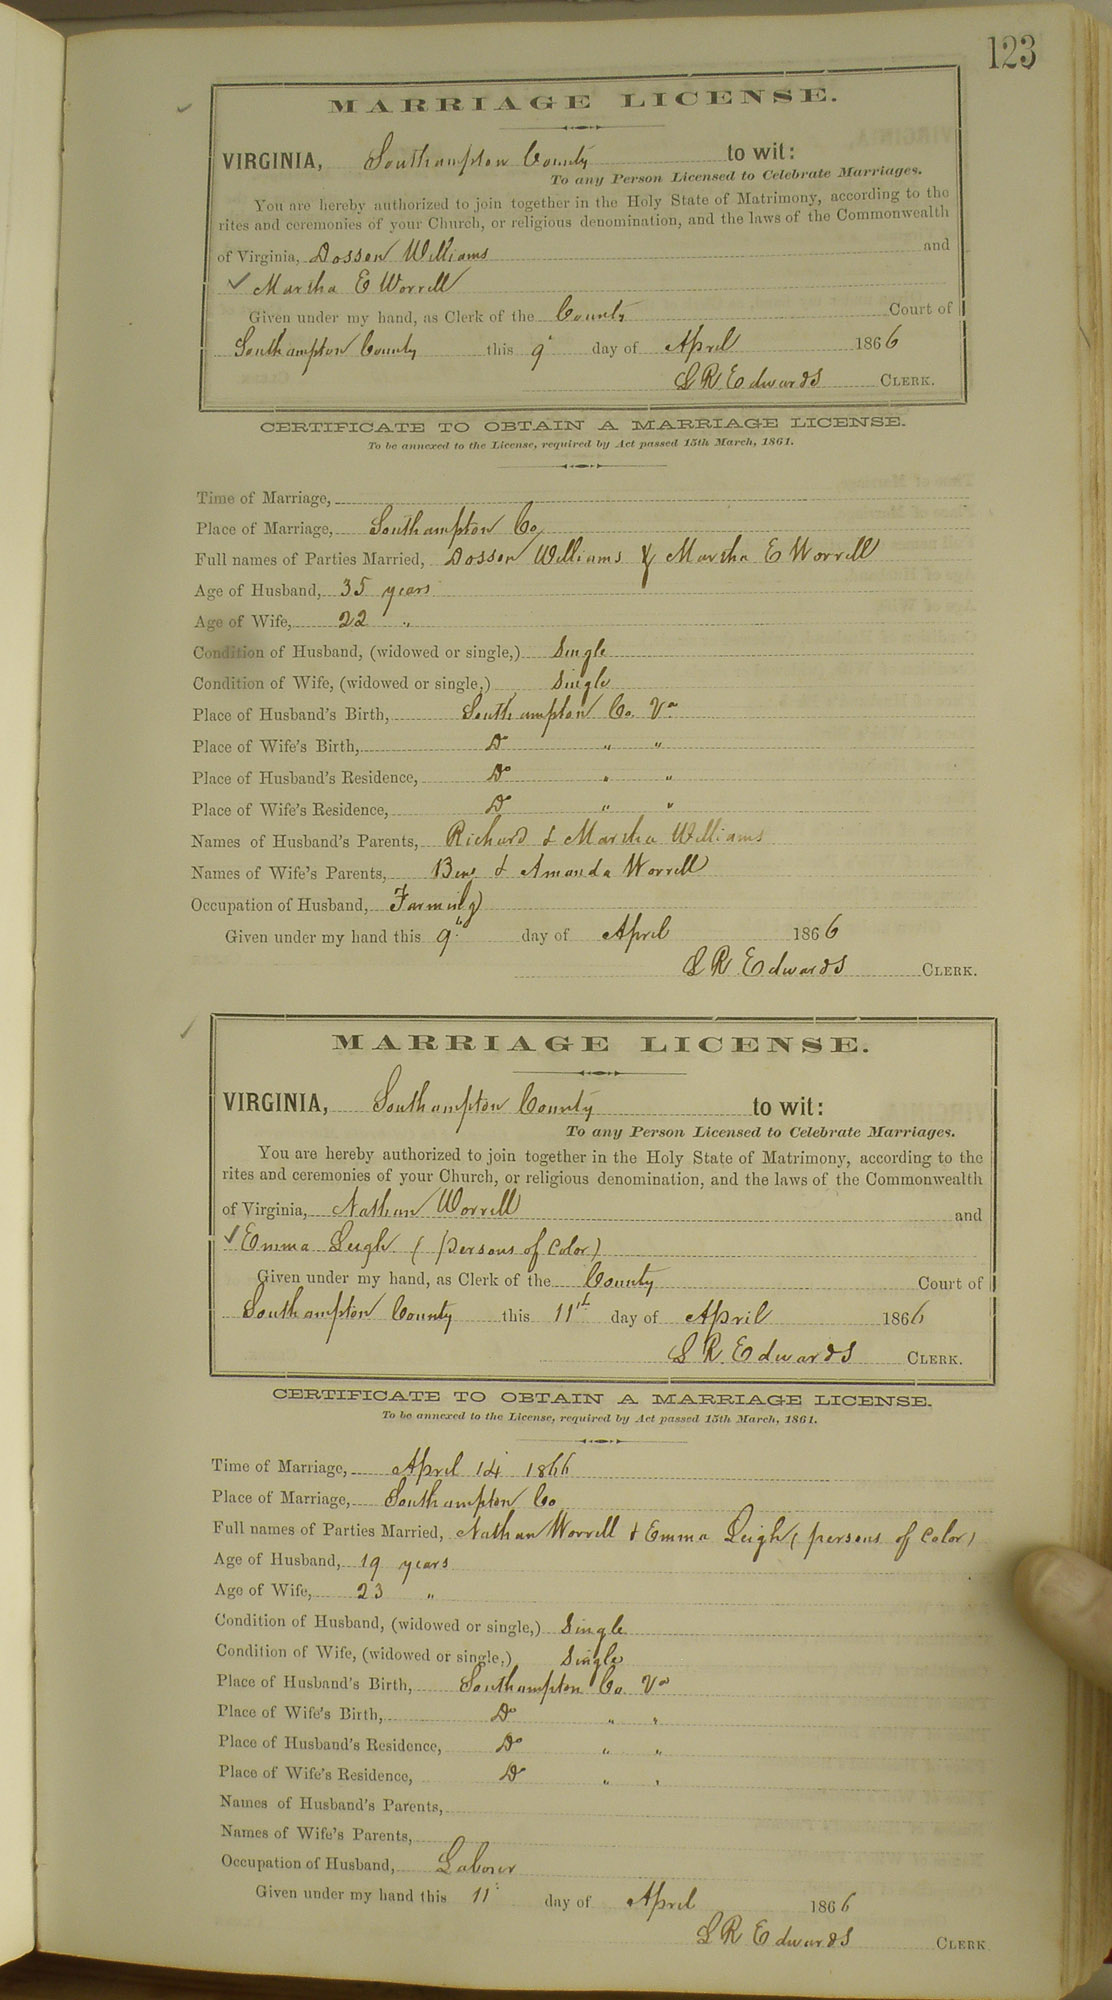 123
MARRIAGE LICENSE.
VIRGINIA, Southampton County to wit:
To any Person Licensed to Celebrate Marriages.
You are hereby authorized to join together in the Holy State of Matrimony, according to the
rites and ceremonies of your Church, or religious denomination, and the laws of the Commonwealth
of Virginia, Dosson Williams and
Marsha E Worrell
Given under my hand, as Clerk of the County Court of
Southampton County this 9" day of April 1866
L R Edwards CLERK.
CERTIFICATE TO OBTAIN A MARRIAGE LICENSE.
To be annexed to the License, required by Act passed 15th March, 1861.
Time of Marriage,
Place of Marriage, Southampton Co
Full names of Parties Married, Dosson Williams & Marsha E Worrell
Age of Husband, 35 years
Age of Wife, 22 "
Condition of Husband, (widowed or single,) Single
Condition of Wife, (widowed or single,) Single
Place of Husband's Birth, Southampton Co. Va
Place of Wife's Birth, Do " "
Place of Husband's Residence, Do " "
Place of Wife's Residence, Do " "
Names of Husband's Parents, Richard & Marsha Williams
Names of Wife's Parents, Benj & Amanda Worrell
Occupation of Husband, Farming
Given under my hand this 9th day of April 1866
L R Edwards CLERK.
MARRIAGE LICENSE.
VIRGINIA, Southampton County to wit:
To any Person Licensed to Celebrate Marriages.
You are hereby authorized to join together in the Holy State of Matrimony, according to the
rites and ceremonies of your Church, or religious denomination, and the laws of the Commonwealth
of Virginia, Nathan Worrell and
Emma Leigh (persons of Color)
Given under my hand, as Clerk of the County Court of
Southampton County this 11th day of April 1866
L R. Edwards CLERK.
CERTIFICATE TO OBTAIN A MARRIAGE LICENSE.
To be annexed to the License, required by Act passed 15th March, 1861.
Time of Marriage, April 14 1866
Place of Marriage, Southampton Co
Full names of Parties Married, Nathan Worrell & Emma Leigh (persons of Color)
Age of Husband, 19 years
Age of Wife, 23 "
Condition of Husband, (widowed or single,) Single
Condition of Wife, (widowed or single,) Single
Place of Husband's Birth, Southampton Co. Va
Place of Wife's Birth, Do " "
Place of Husband's Residence, Do " "
Place of Wife's Residence, Do " "
Names of Husband's Parents,
Names of Wife's Parents,
Occupation of Husband, Laborer
Given under my hand this 11" day of April 1866
L R Edwards CLERK